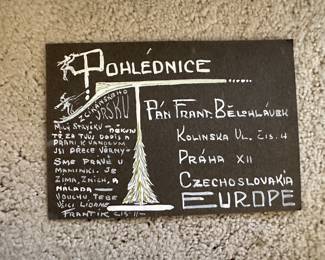 POHLÉDNICE
MILÝ STRÝČKU — DĚKUJI
TĚ ZA TVŮJ DOPIS A
PŘÁNÍ K VÁNOCŮM
JSI PŘECE VĚRNÝ-
SME PRÁVĚ U
MAMINKY. JE
ZIMA, SNÍH, A
NÁLADA —
TEBE
FRANTÍK
PÁN FRANT. BĚLOHLÁVEK
KOLINSKA UL. ČIS. 4
PRÁHA XII
CZECHOSLOVAKIA
EUROPE